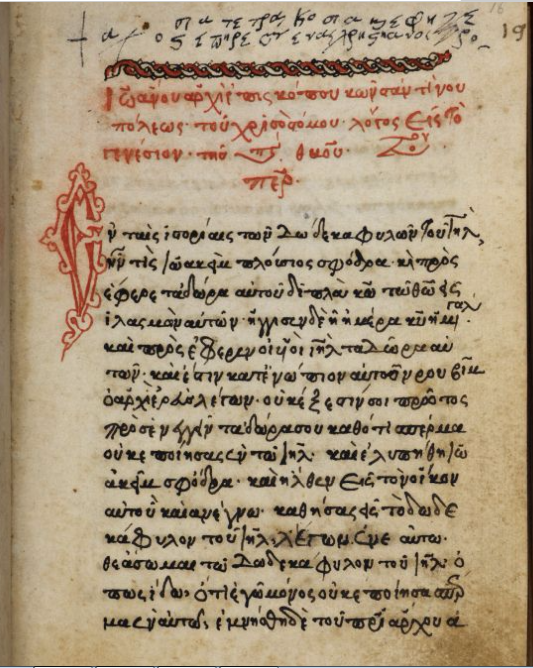 19
Ἰωάνου ἀρχιεπισκόπου κωνσταντίνου
πόλεως · τοῦ χρισοστόμου · λόγος εἰς τὸ
γενέσιον · τῆσ θκου
Ἐν ταῖς ἱστορίαις τῶν δώδεκα φυλῶν τοῦ ἰηλ,
ἦν τὶς ἰωακεὶμ πλούσιος σφόδρα · κὶ πρὸς
έφερε τὰ δῶρα αὐτοῦ διπλὰ κῶ τῶ θῶ εἰς
ἱλασμὸν αὐτῶν · ἤγγισεν δὲ ἡ ἡμέρα κῦ ἡ μγαλ
καὶ πρὸς έφερων οἱ υἱοὶ ἰηλ τὰ δῶρα αὐ
τῶν · καὶ ἔστιν κατενώπιον αὐτοῦ ρουβὶμ
ὁ ἀρχιερεὺς λέγων · οὐκ ἔξεστιν σοι πρότος
προσενεγκῆν τὰ δῶρα σου καθότι σπέρμα
οὐκ ἐποίησας ἐν τῶ ἰηλ · καὶ ἐλυπήθη ἰω
ακεὶμ σφόδρα · καὶ ἦλθεν εἰς τὸν οἶκον
αὐτοῦ καὶ ἀνέγνω · καθήσας εἰς τὸ δωδε
κάφυλον τοῦ ἰηλ, λέγων
θεάσωμαι τῶ δωδεκάφυλον τοῦ ἰηλ · ὅ
πως ἴδω, ὅτι ἐγὼ μόνος οὐκ ἐποίησα σπέρ
μα ἐν αὐτῶ, ἐμνήσθη δὲ τοῦ πρἰάρχου ἀ